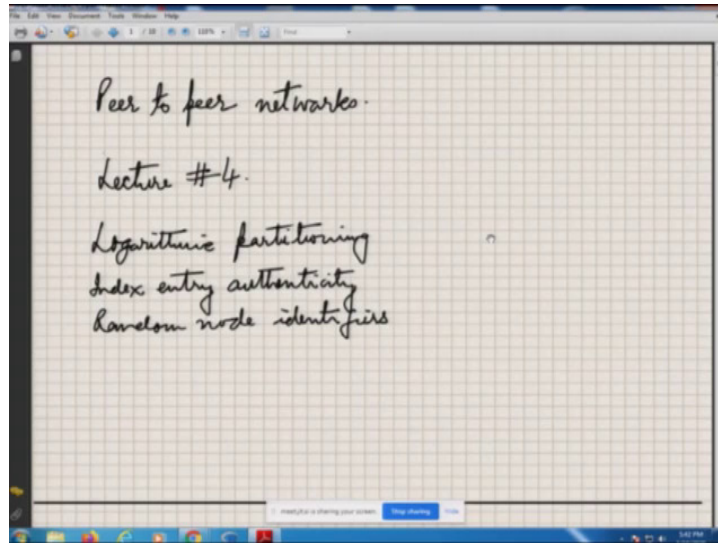 File Edit View Document Tools Window Help
1 / 10 118% Find
Peer to peer networks.
Lecture #4.
Logarithmic partitioning
Index entry authenticity
Random node identifiers
is sharing your screen. Stop sharing Hide
5:42 PM